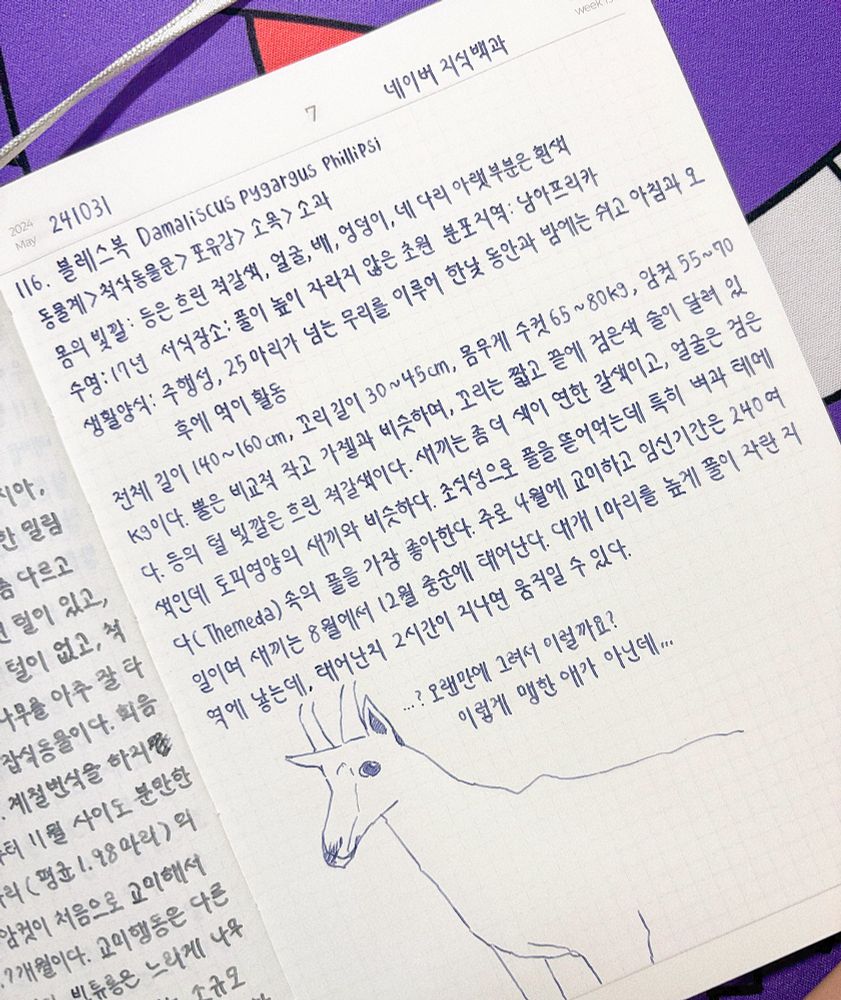 week 19
네이버 지식백과
7
2024
May
241031
116. 블레스복 Damaliscus pygargus phillipsi
동물계>척삭동물문>포유강>소목>소과
몸의 빛깔: 등은 흐린 적갈색, 얼굴, 배, 엉덩이, 네 다리 아랫부분은 흰색
수명: 17년 서식장소: 풀이 높이 자라지 않은 초원 분포지역: 남아프리카
생활양식: 주행성, 25마리가 넘는 무리를 이루어 한낮 동안과 밤에는 쉬고 아침과 오
후에 먹이 활동
전체 길이 140~160cm, 꼬리길이 30~45cm, 몸무게 수컷 65~80kg, 암컷 55~70
kg이다. 뿔은 비교적 작고 가젤과 비슷하며, 꼬리는 짧고 끝에 검은색 술이 달려 있
다. 등의 털 빛깔은 흐린 적갈색이다. 새끼는 좀 더 색이 연한 갈색이고, 얼굴은 검은
색인데 토피영양의 새끼와 비슷하다. 초식성으로 풀을 뜯어먹는데 특히 벼과 테메
다(Themeda)속의 풀을 가장 좋아한다. 주로 4월에 교미하고 임신기간은 240여
일이며 새끼는 8월에서 12월 중순에 태어난다. 대개 1마리를 높게 풀이 자란 지
역에 낳는데, 태어난지 2시간이 지나면 움직일 수 있다.
...? 오랜만에 그려서 이럴까요?
이렇게 맹한 애가 아닌데...
지아,
한 밀림
좀 다르고
털이 있고,
털이 없고, 척
나무를 아주 잘 타
잡식동물이다. 회음
계절번식을 하지
부터 11월 사이도 분만한
(평균 1.98마리)의
암컷이 처음으로 교미해서
7개월이다. 교미행동은 다른
빈튜롱은 느리게 나무
소규모